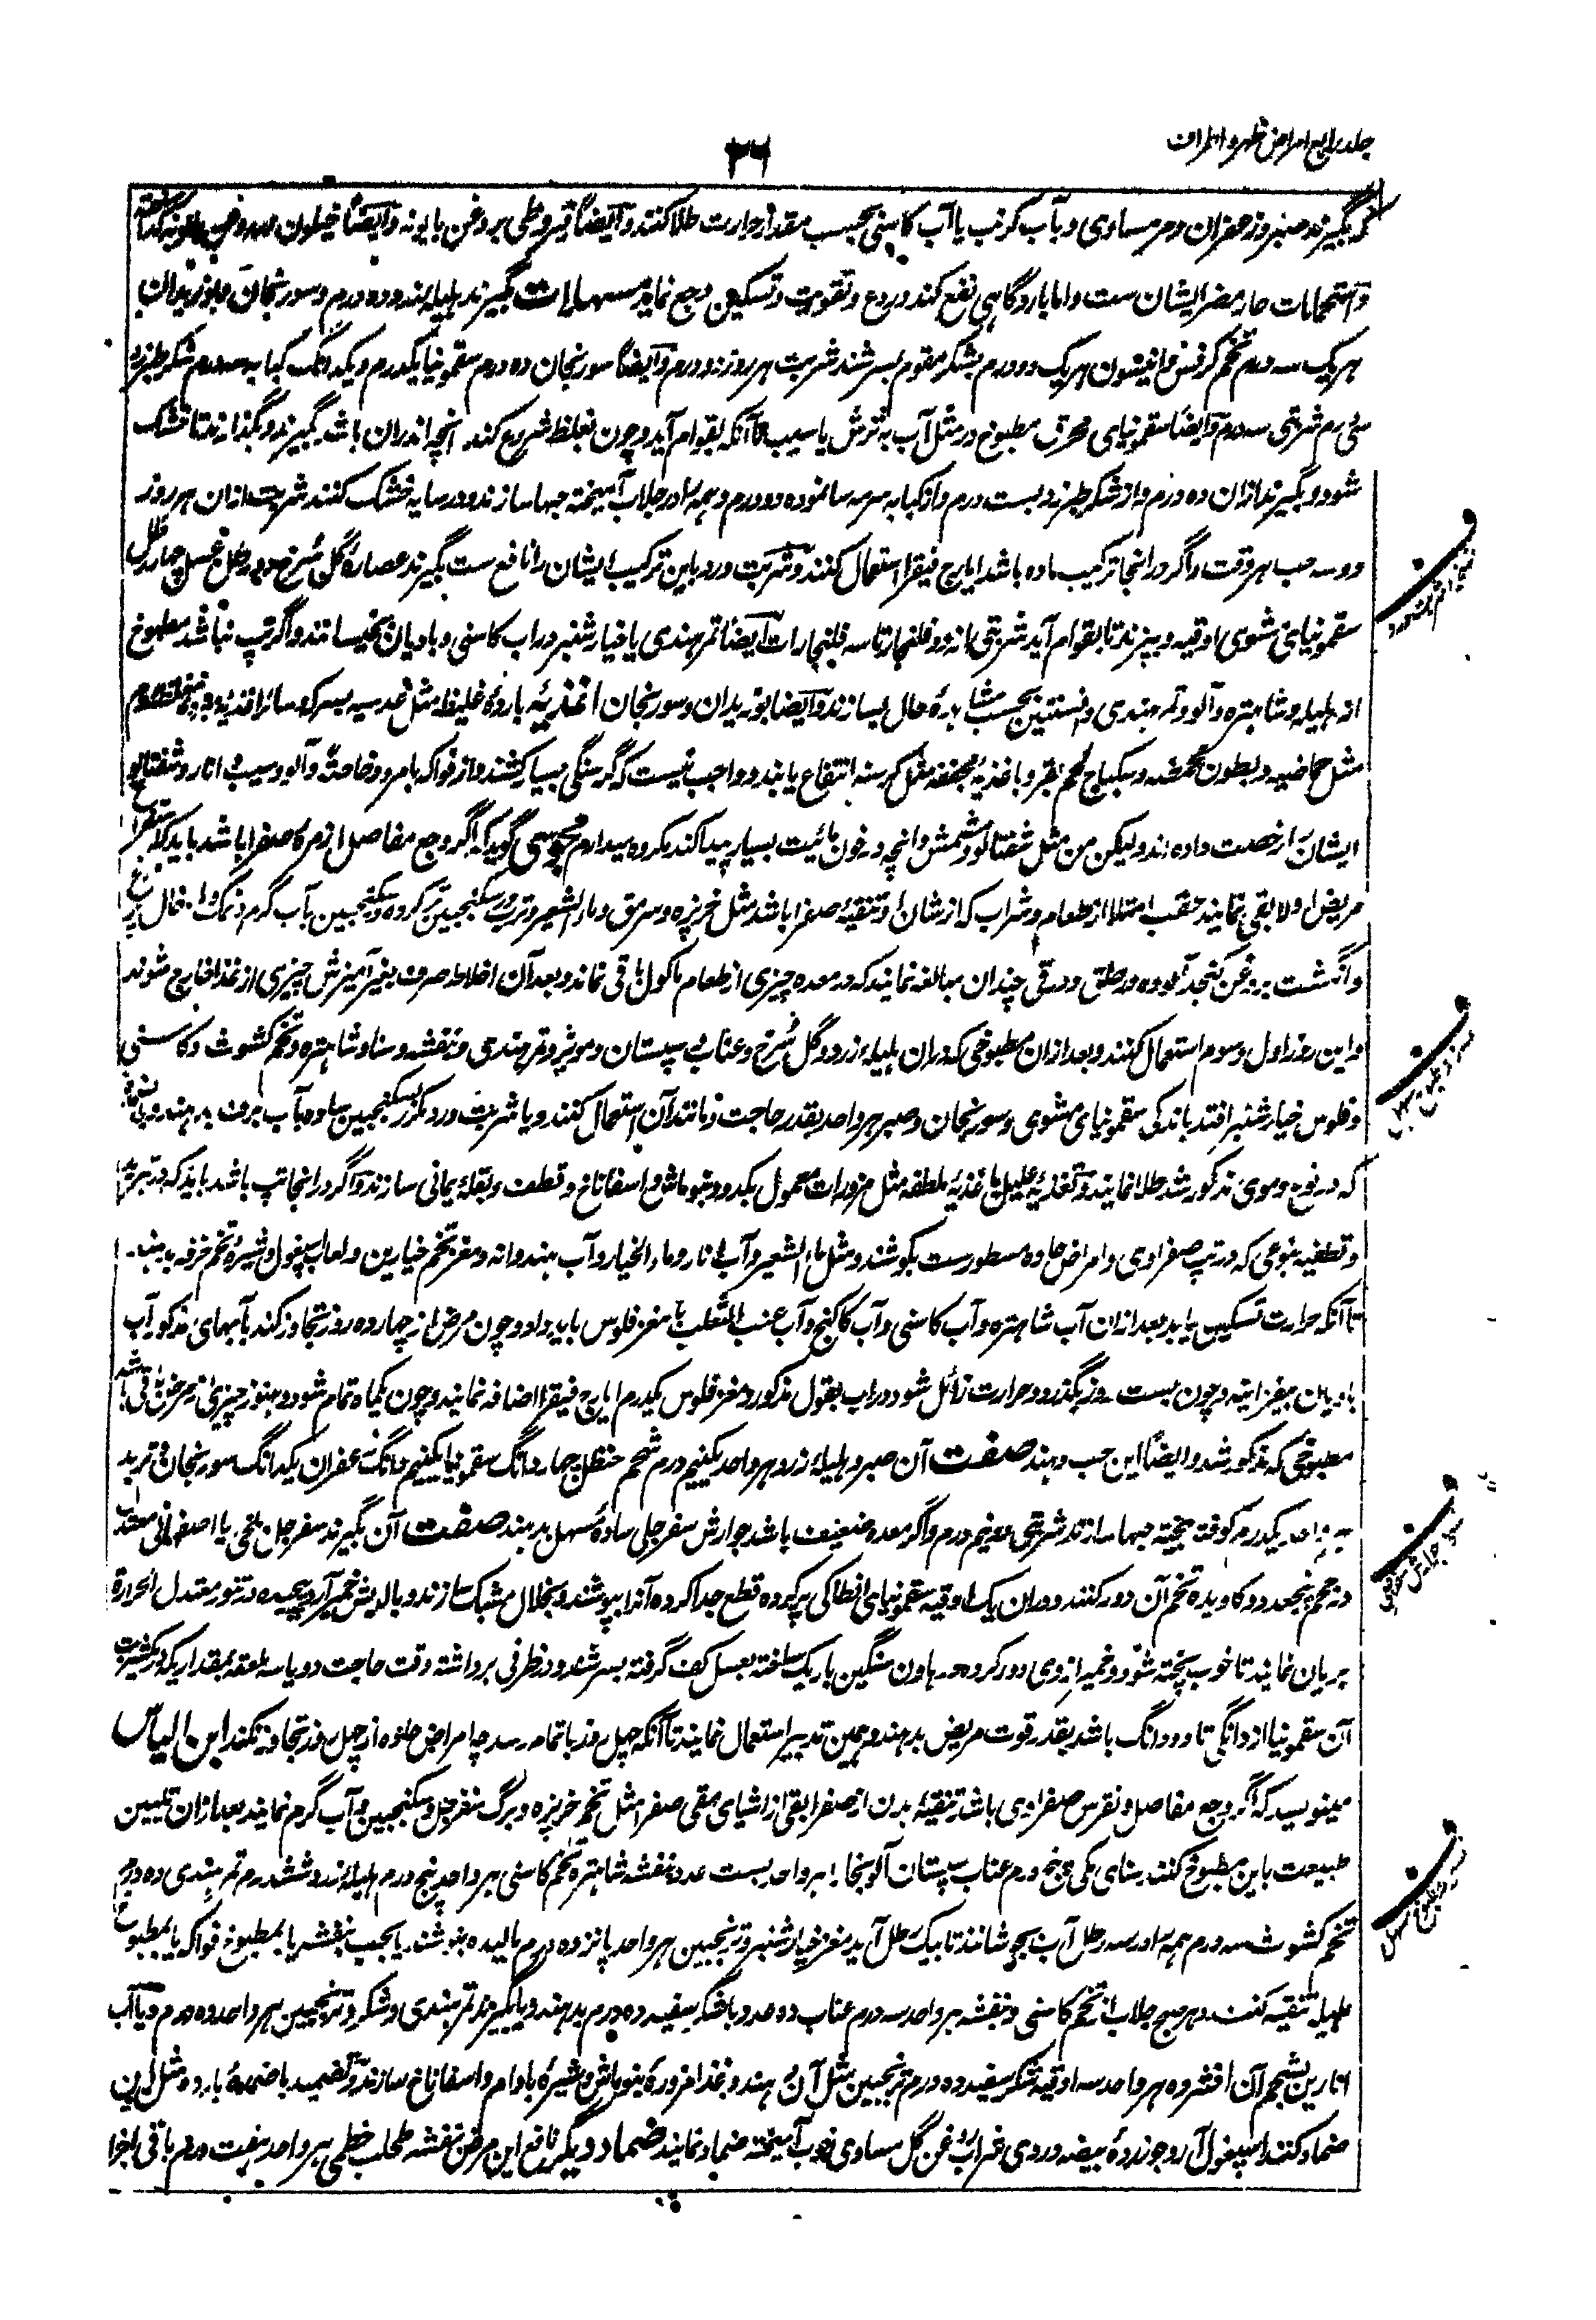 جلد رابع امراض ظهر و اطراف
۳۶
که بگیرند صبر و زعفران و مر مساوی و بآب کرنب یا آب کاسنی بحسب مقدار حرارت طلا کنند و ایضاً قیروطی بروغن بابونه و ایضاً خیطون
و استحمامات حار مضر ایشان ست و اما بارد گاهی نفع کند در ردع و تقویت و تسکین وجع نماید مسهلات بگیرند بلیله هندی ده درم و سورنجان و بوزیدان
هر یک سه درم تخم کرفس و انیسون هر یک دو درم بشکر مقوم بسرشند شربت هر روز دو درم و ایضاً سورنجان ده درم سقمونیا یکدرم و یکدانگ کبابه سه درم شکر طبرزد
سی درم شربتی سه درم و ایضاً سقمونیای محرق مطبوخ در مثل آب به ترش یا سیب تا آنکه بقوام آید و چون بغلظ شروع کند آنچه اندران باشد بگیرند و بگذارند تا خشک
شود و بگیرند ازان ده درم و از شکر طبرزد بست درم و از کبابه سرمه سا نموده دو درم و همه را در جلاب آمیخته حبها سازند و در سایه خشک کنند شربت ازان هر روز
دو سه حب هر وقت و اگر در اینجا ترکیب ماده باشد ایارج فیقرا استعمال کنند و شربت ورد باین ترکیب ایشان را نافع ست بگیرند عصاره گل سرخ دو رطل عسل چهار رطل
سقمونیای مشوی اوقیه و بپزند تا بقوام آید شربتی از دو فلنجار تا سه فلنجارات ایضاً تمر هندی یا خیار شنبر در آب کاسنی و بادیان بخیسانند و اگر تپ نباشد مطبوخ
از هلیله و شاهتره و آلو و تمر هندی و افسنتین بحسب مشاهده حال بسازند و ایضاً بوزیدان و سورنجان اغذیه بارده غلیظ مثل عدسیه بسرکه و سائر اغذیه
مثل حماضیه و بطون محمضه و سکباج لحم بقر و باغذیه مجففه مثل کرسنه انتفاع یابند و واجب نیست که گرسنگی بسیار کشند و از فواکه بامرود خاصةً و آلو و سیب و انار و شفتالو
ایشان را رخصت داده اند و لیکن من مثل شفتالو و مشمش و آنچه در خون مائیت بسیار پیدا کند مکروه میدارم مجوسی گوید که اگر وجع مفاصل از مره صفرا باشد باید که
مریض را اولا بقی نمایند عقب امتلا از طعام و شراب که از شان او تنقیه صفرا باشد مثل خربزه و سرمق و ماء الشعیر و ترب در سکنجبین تر کرده و سکنجبین بآب گرم و نمک و ادخال پر
و انگشت بروغن کنجد آلوده در حلق و در قی چندان مبالغه نمایند که در معده چیزی از طعام ماکول باقی نماند و بعد آن اخلاط صرف بغیر آمیزش چیزی از غذا خارج شوند
و این روز اول و سوم استعمال کنند و بعد ازان مطبوخی که دران بلیله زرد و گل سرخ و عناب و سپستان و مویز و تمر هندی و بنفشه و سنا و شاهتره و تخم کشوث و کاسنی
و فلوس خیار شنبر افتد باندکی سقمونیای مشوی و سورنجان و صبر هر واحد بقدر حاجت و مانند آن استعمال کنند و یا شربت ورد مکرر بسکنجبین ساده بآب برف بدهند
که در نوع دموی مذکور شد طلا نمایند و تغذیه علیل باغذیه ملطفه مثل مزورات معمول بکدو و بنوماش و اسفاناخ و قطف و بقله یمانی سازند و اگر در اینجا تپ باشد باید که در تبرید
و تطفیه بنوعی که در تپ صفراوی و امراض حاده مسطورست بکوشند و مثل ماء الشعیر و آب انار و ماء الخیار و آب هندوانه و مغز تخم خیارین و لعاب اسپغول و شیره تخم خرفه بدهند
تا آنکه حرارت تسکین یابد بعد ازان آب شاهتره و آب کاسنی و آب کاکنج و آب عنب الثعلب با مغز فلوس باید داد و چون مرض از چهارده روز تجاوز کند بآبهای مذکور آب
بادیان بیفزایند و چون بست روز بگذرد و حرارت زائل شود در آب بقول مذکور و مغز فلوس یکدرم ایارج فیقرا اضافه نمایند و چون یکماه تمام شود و هنوز چیزی از مرض باقی باشد
مطبوخی که مذکور شد و ایضاً این حب دهند صفت آن صبر و هلیله زرد هر واحد یکنیم درم شحم حنظل چهار دانگ سقمونیا یکنیم دانگ زعفران یکدانگ سورنجان و تربد
هر واحد یکدرم کوفته بیخته حبها سازند شربتی دو نیم درم و اگر معده ضعیف باشد جوارش سفرجلی ساده مسهل بدهند صفت آن بگیرند سفرجل بلخی یا اصفهانی معتدل
در حجم پنجعدد و کاویده تخم آن دور کنند و دران یک اوقیه سقمونیای انطاکی پر کرده قطع جدا کرده آنرا بپوشند و بخلال مشبک سازند و بالایش خمیر آرد پیچیده در تنور معتدل الحرارة
بریان نمایند تا خوب پخته شود و خمیر از وی دور کرده در هاون سنگین باریک ساخته بعسل کف گرفته بسرشند و در ظرفی برداشته وقت حاجت دو یا سه ملعقه بمقداریکه در یک شربت
آن سقمونیا از دانگی تا دو دانگ باشد بقدر قوت مریض بدهند و همین تدبیر استعمال نمایند تا آنکه چهل روز باتمام رسد چه امراض حاده از چهل روز تجاوز نکند ابن الیاس
مینویسد که اگر وجع مفاصل و نقرس صفراوی باشد تنقیه بدن از صفرا بقی از اشیای مقی صفرا مثل تخم خربزه و برگ سفرجل و سکنجبین و آب گرم نمایند بعد ازان تلیین
طبیعت باین مطبوخ کنند سنای مکی پنج درم عناب سپستان آلو بخارا هر واحد بست عدد بنفشه شاهتره تخم کاسنی هر واحد پنج درم هلیله زرد ششدرم تمر هندی ده درم
تخم کشوث سه درم همه را در سه رطل آب بجوشانند تا بیک رطل آید مغز خیار شنبر و ترنجبین هر واحد پانزده درم مالیده بنوشند یا بحب بنفشه یا بمطبوخ فواکه یا بمطبوخ
هلیله تنقیه کنند و هر صبح جلاب از تخم کاسنی و بنفشه هر واحد سه درم عناب ده عدد با شکر سفید ده درم بدهند و یا بگیرند تمر هندی و شکر و ترنجبین هر واحد ده درم و یا آب
انارین بشحم آن افشرده هر واحد سه اوقیه شکر سفید ده درم ترنجبین مثل آن بدهند و غذا مزوره بنوماش و بشیره بادام و اسفاناخ سازند و تضمید باضمده بارد و مثل این
ضماد کنند اسپغول آرد جو زرده بیضه دردی شراب روغن گل مساوی خوب آمیخته ضماد نمایند ضماد دیگر نافع این مرض بنفشه طحلب خطمی هر واحد هفت درم باقی اجزا